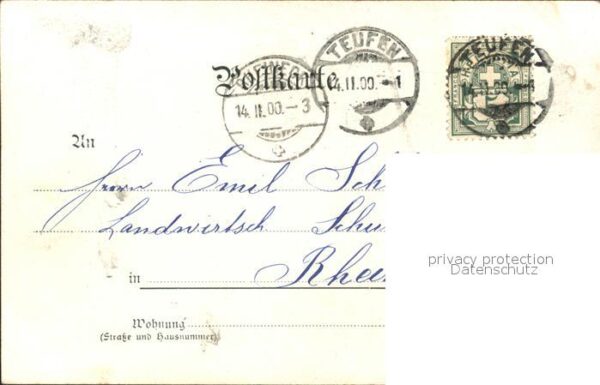 Postkarte
TEUFEN
14.II.00.-1
14.II.00.-3
TEUFEN
An
Herrn Emil Sch
Landwirtsch Schu
in Rhei
Wohnung
(Straße und Hausnummer)
privacy protection
Datenschutz